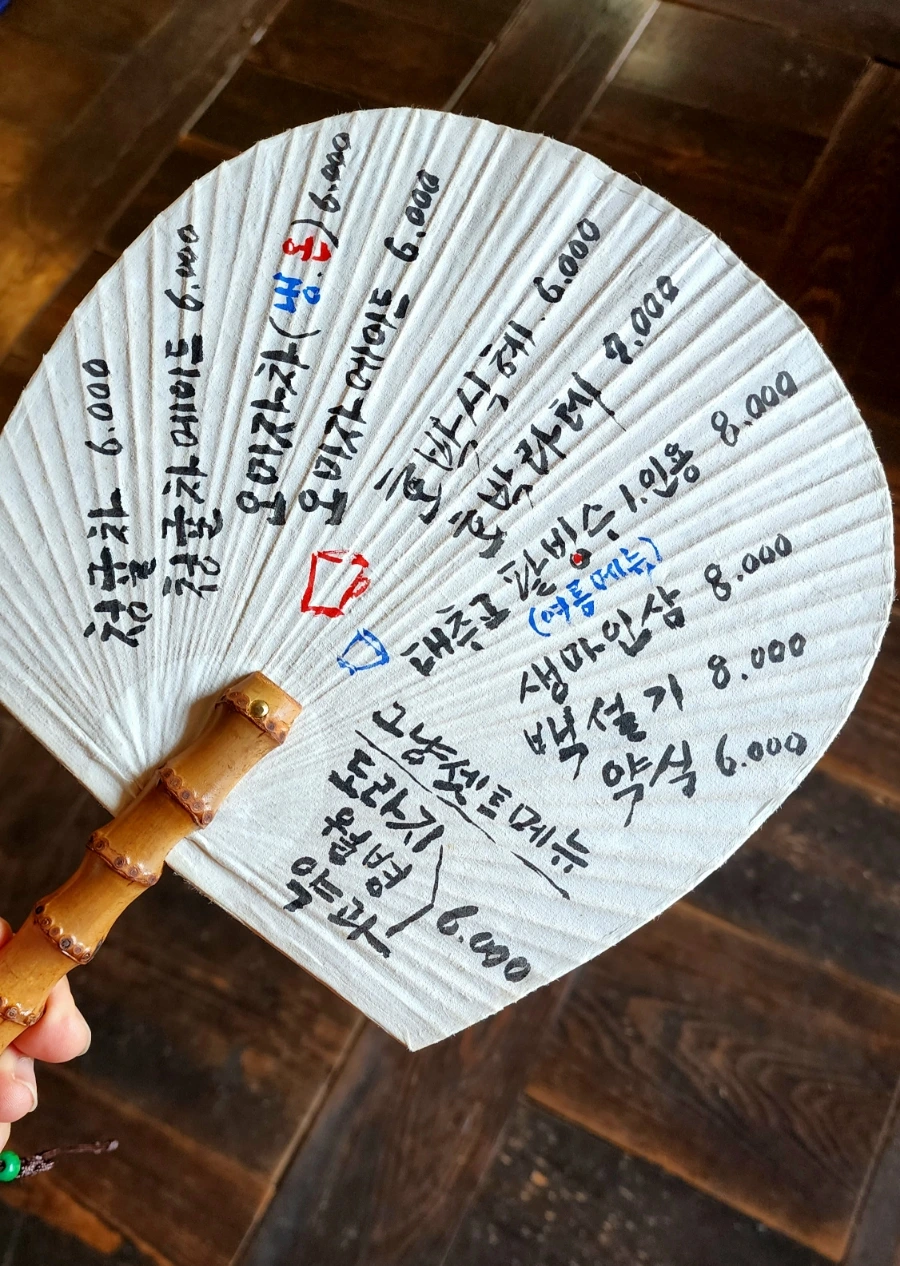 청귤차 6.000
청귤차에이드 6.000
오미자차(냉.온) 6.000
오미자에이드 6.000
호박식혜 6.000
호박라떼 7.000
대추고 팥빙수 1인용 8.000
(여름메뉴)
생마인삼 8.000
백설기 8.000
약식 6.000
그냥셋트메뉴
도라지
월병
약과
6.000